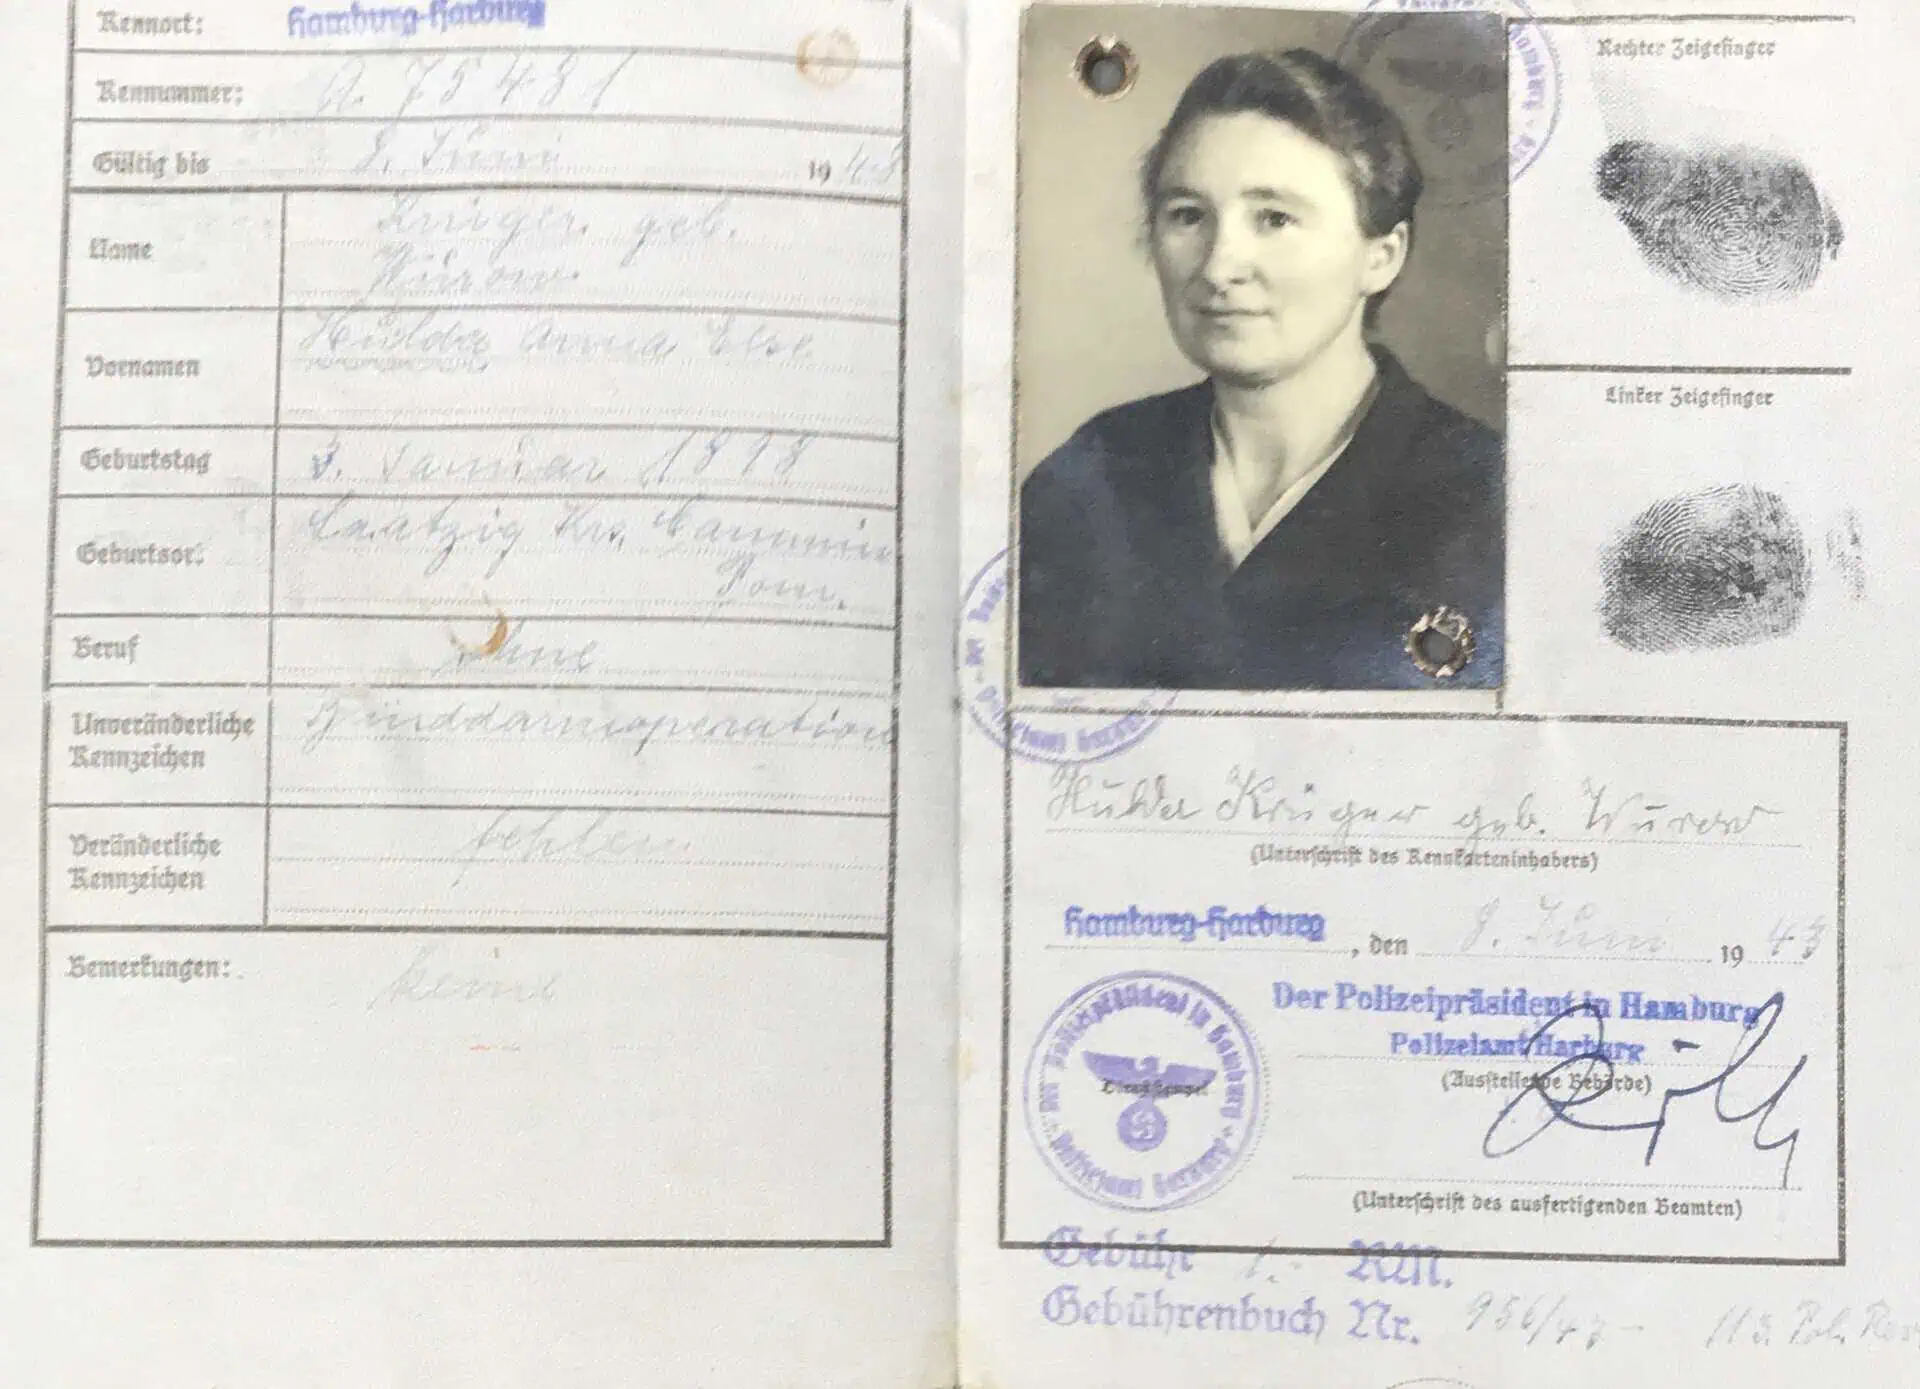 Kennort: Hamburg-Harburg
Kennummer: A. 75481
Gültig bis 8. Juni 1948
Name Krüger geb.
Wurow
Vornamen Hulda Anna Else
Geburtstag 3. Januar 1898
Geburtsort: Laatzig Krs. Cammin
Pom.
Beruf ohne
Unveränderliche Kennzeichen Blinddarmoperation
Veränderliche Kennzeichen fehlen
Bemerkungen: keine
Rechter Zeigefinger
Linker Zeigefinger
Hulda Krüger geb. Wurow
(Unterschrift des Kennkarteninhabers)
Hamburg-Harburg, den 8. Juni 1943
Der Polizeipräsident in Hamburg
Polizeiamt Harburg
(Ausstellende Behörde)
Der Polizeipräsident in Hamburg
Dienststempel
Polizeiamt Harburg
(Unterschrift des ausfertigenden Beamten)
Gebühr 1.- RM.
Gebührenbuch Nr. 956/43 - 113. Pol. Rev